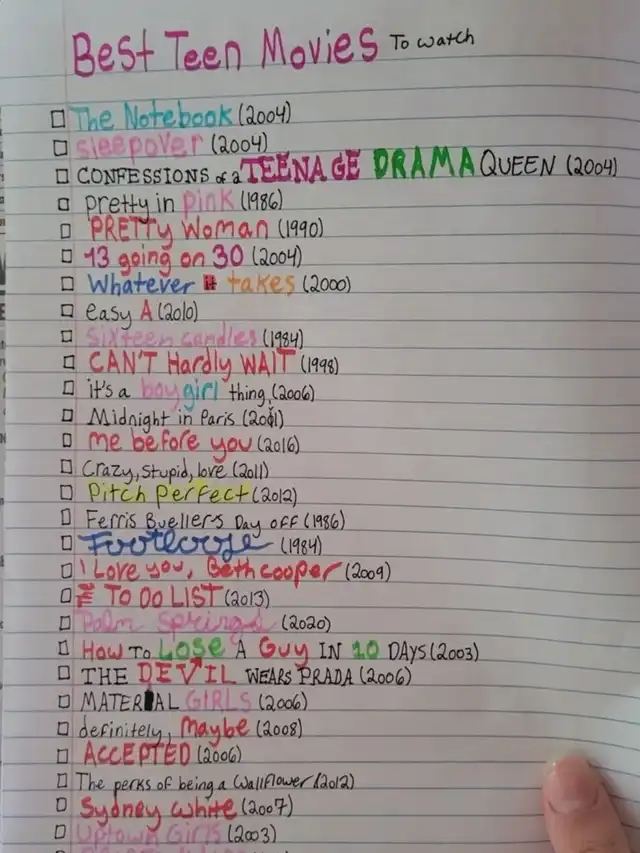 Best Teen Movies To watch
The Notebook (2004)
Sleepover (2004)
CONFESSIONS of a TEENAGE DRAMA QUEEN (2004)
pretty in pink (1986)
PRETTY Woman (1990)
13 going on 30 (2004)
Whatever it takes (2000)
easy A (2010)
Sixteen candles (1984)
CAN'T Hardly WAIT (1998)
it's a boy girl thing (2006)
Midnight in Paris (2011)
me before you (2016)
Crazy, Stupid, love (2011)
Pitch Perfect (2012)
Ferris Bueller's Day off (1986)
Footloose (1984)
I Love you, Beth cooper (2009)
THE TO DO LIST (2013)
Palm Springs (2020)
How To LOSE A Guy IN 10 DAYS (2003)
THE DEVIL WEARS PRADA (2006)
MATERIAL GIRLS (2006)
definitely, Maybe (2008)
ACCEPTED (2006)
The perks of being a Wallflower (2012)
Sydney White (2007)
Uptown Girls (2003)